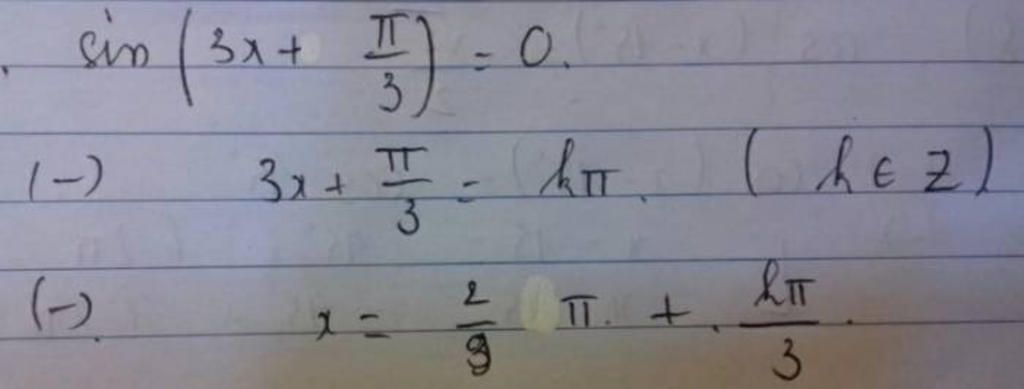 . sin (3x + π/3) = 0.
(-) 3x + π/3 = kπ. (k ∈ Z)
(-). x = 2/9 π. + . kπ/3 .